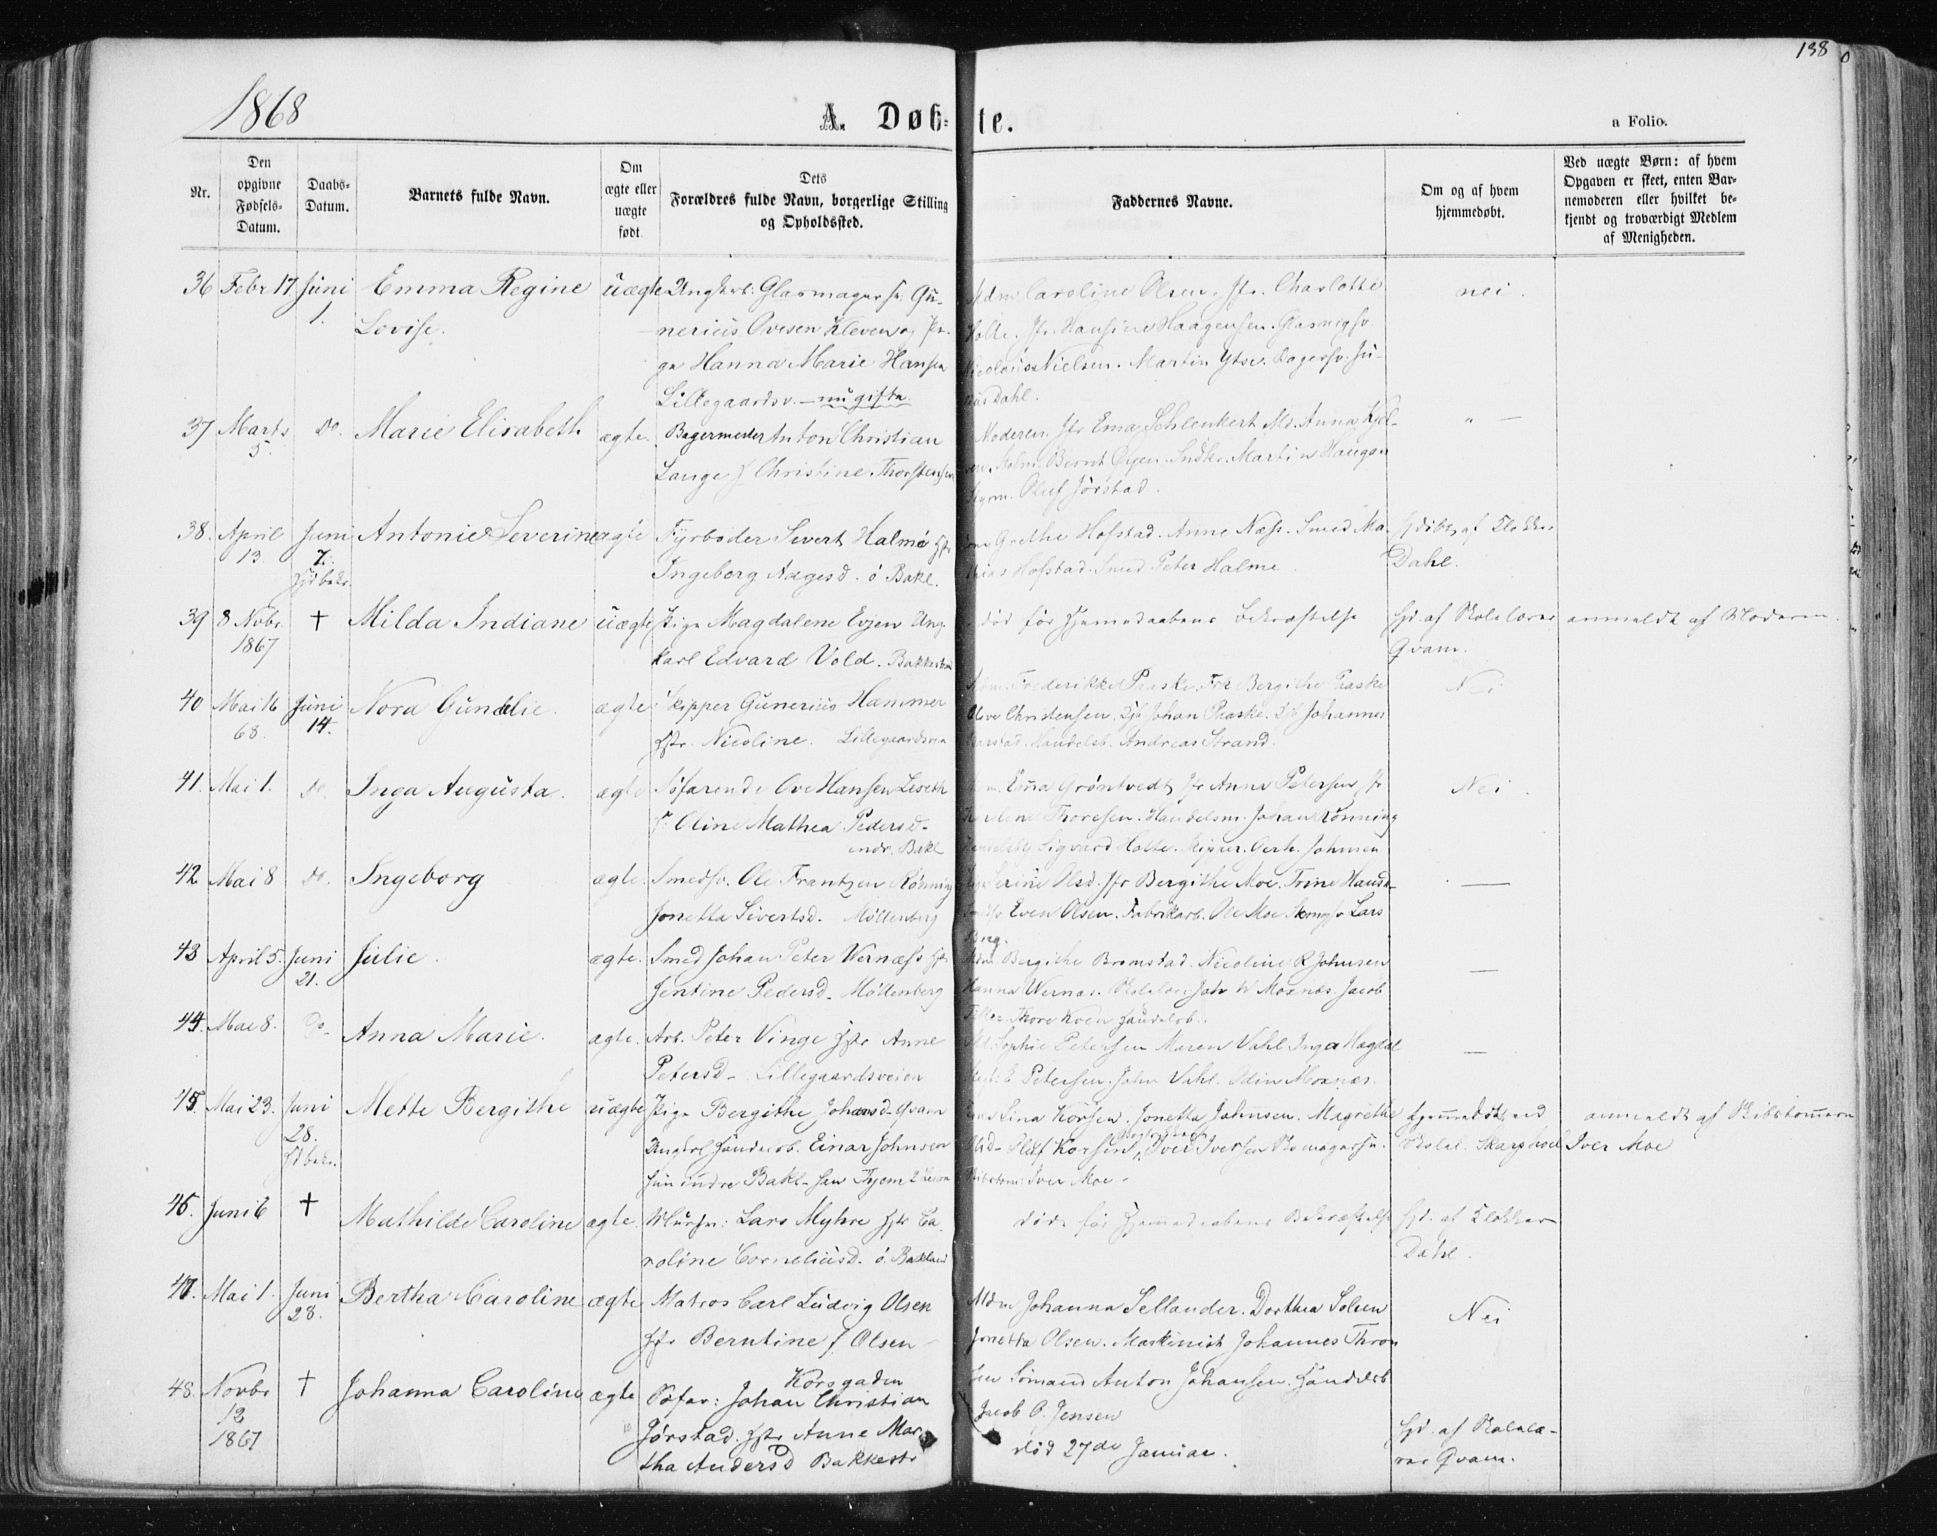 1868
A. Døb=te.
138
a Folio.
Nr.
Den opgivne Fødsels-Datum.
Daabs-Datum.
Barnets fulde Navn.
Om ægte eller uægte født.
Dets Forældres fulde Navn, borgerlige Stilling og Opholdssted.
Faddernes Navne.
Om og af hvem hjemmedøbt.
Ved uægte Børn: af hvem Opgaven er skeet, enten Barnemoderen eller hvilket bekjendt og troværdigt Medlem af Menigheden.
36 Febr 17 Juni 1. Emma Regine Lovise. uægte
Ungkrl. Glasmagersv. Gu-
nerius Ovesen Kleven og Pi-
ge Hanna Marie Hansen
Lillegaardsv. — nu gifte
Mdm Caroline Olsen. Jfr. Charlotte
Holte. Jfr. Hansine Haagensen. Glasmgsv
Nicolai Nielsen. Martin Bagersv. Ju-
lius Dahl.
nei.
37 Marts 5. Do. Marie Elisabeth ægte.
Bagermester Anton Christian
Lange f Christine Thorstensen
Moderen. Jfr Ema Schlenkert Md. Anna Kjel-
Bernt Martin Haugen
Oluf Jørstad.
" —
38. April 13 Juni 7. Hjdbekr. Antonie Severine ægte
Fyrbøder Sivert Halmø Hstr
Ingeborg Aagesd. ø Bakl.
Grethe Hofstad. Anne Næss. Smed Ma-
thias Hofstad. Smed Peter Halmø.
Hjdøbt af Klokker
Dahl.
39 8 Novbr. 1867 † Milda Indiane uægte
Pige Magdalene Evjen Ung-
karl Edvard Vold. Bakkestrand
død før Hjemmedaabens Bekræftelse
Hjd. af Skolelærer
Qvam.
anmeldt af Moderen.
40 Mai 16 68. Juni 14. Nora Gundelie. ægte
Skipper Gunerius Hammer
Hstr. Nicoline. Lillegaardsveien
Mdm. Frederikke Praske. Frk Bergithe Praske
Christensen. Johan Praske. Johannes
Handelsb. Andreas Strand.
Nei
41. Mai 1. Do. Inga Augusta. ægte
Søfarende Ove Hansen Leseth
Oline Mathea Pedersd-
indr. Bakl
Ema Grøntvedt Jfr Anna Petersen Jfr
Thoresen. Handelsm. Johan Rønning
Sigvard Holte. Skipper. Johnsen
Nei.
42 Mai 8 Do. Ingeborg ægte.
Smedsv. Ole Frantzen Rønning
Jonetta Sivertsd. Møllenberg
Serine Olsd. Jfr Bergithe Moe. Trine Hansd-
Even Olsen. Fabrikarb. Ole Moe. Lars
Berg.
—
43 April 5. Juni 21. Julie. ægte.
Smed Johan Peter Vernæss Hstr
Jentine Pedersd- Møllenberg
Mdm. Bergithe Bromstad. Nicoline R Johnsen
Hanna Wernæs. Skolelær. Joh W Moxnes. Jacob
Tiller. Thore Kven Handelsb.
—
44. Mai 8. Do- Anna Marie. ægte.
Arb. Peter Vinge Hstr Anne
Petersd- Lillegaardsveien
Md. Sophie Petersen Maren Vahl Inga Hagdal
E Petersen. John Vahl. Odin Moxnæs.
—
45. Mai 23. Juni 28. Hjdbekr. Mette Bergithe uægte
Pige Bergithe Johansd- Qvam
Ungkrl Handelsb. Einar Johnsen
hun indre Bakl- han Tyem 2 Leirm
Sina Korsen. Jonetta Johnsen. Magrethe
Olsd- Oluf Korsen, Iver Iversen Skomagersv.
Skibstøm: Iver Moe -
Hjemmedøbt ved
Skolel. Skarsbøel
anmeldt af Skibstømrer
Iver Moe
46. Juni 6 † Mathilde Caroline ægte.
Mursv: Lars Myhre Hstr Ca-
roline Corneliusd. ø. Bakland
døde før Hjemmedaabens Bekræftelse
Hjd. af Klokker
Dahl.
47. Mai 1. Juni 28. Bertha Caroline ægte
Matros Carl Ludvig Olsen
Hstr Berntine f Olsen -
Korsgaden
Mdm Johanna Sellander. Dorthea Solem
Jonetta Olsen. Maskinist Johannes Thron-
sen Sømand Anton Johansen. Handelsb
Jacob P. Jensen
Nei
48. Novbr 12 1867 † Johanna Caroline ægte
Søfar: Johan Christian
Jørstad. Hstr Anne Mar-
tha Andersd Bakkestr
død 27de Januar.
Hjd. af Skolelæ-
rer Qvam.